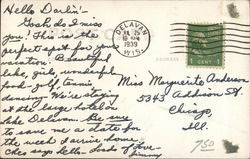 Hello Darlin'!
Gosh do I miss
you! This is the
perfect spot for your
vacation. Beautiful
lake, girls, wonderful
food - golf, tennis
dancing. We're staying
at the large hotel on
Lake Delavan. Be sure
to save me a date for
the week I arrive home!
Ches says hello. Loads of love
Jimmy
DELAVAN
1939
WIS.
1 CENT 1
Miss Marguerite Anderson
5343 Addison St.
Chicago
Ill.
7.50